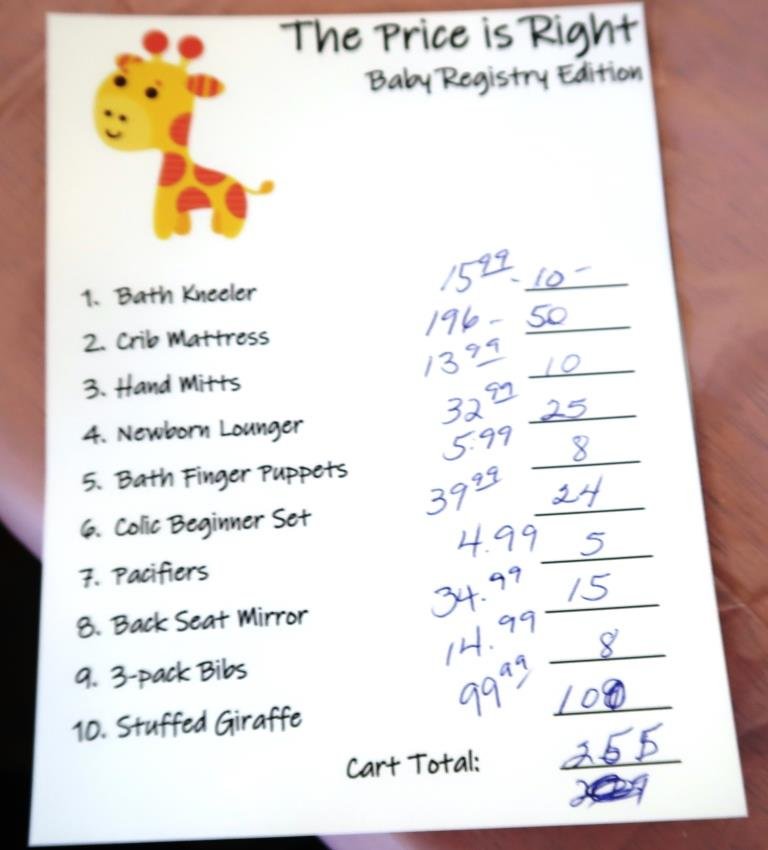 The Price is Right
Baby Registry Edition
1. Bath Kneeler 15.99 - 10 -
2. Crib Mattress 196 - 50
3. Hand Mitts 13.99 10
4. Newborn Lounger 32.99 25
5. Bath Finger Puppets 5.99 8
6. Colic Beginner Set 39.99 24
7. Pacifiers 4.99 5
8. Back Seat Mirror 34.99 15
9. 3-pack Bibs 14.99 8
10. Stuffed Giraffe 99.99 100
Cart Total: 255